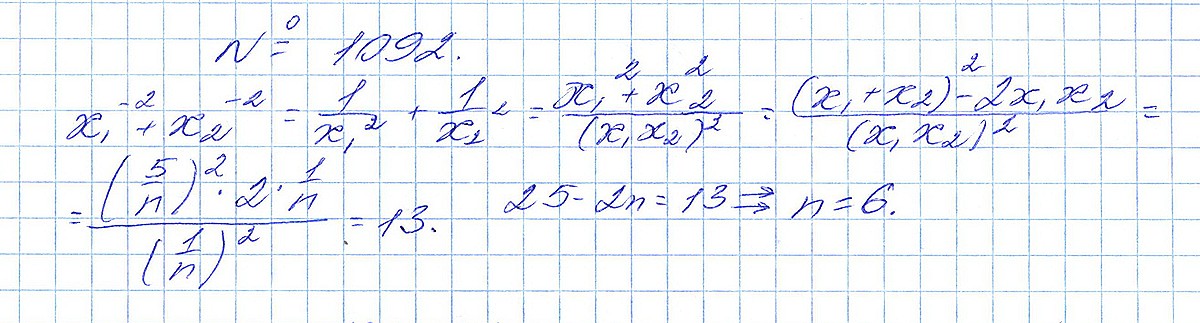 № 1092.
x₁⁻² + x₂⁻² = 1/x₁² + 1/x₂² = (x₁² + x₂²)/(x₁x₂)² = ((x₁ + x₂)² - 2x₁x₂)/(x₁x₂)² =
= ((5/n)² · 2 · 1/n)/(1/n)² = 13. 25 - 2n = 13 ⇒ n = 6.